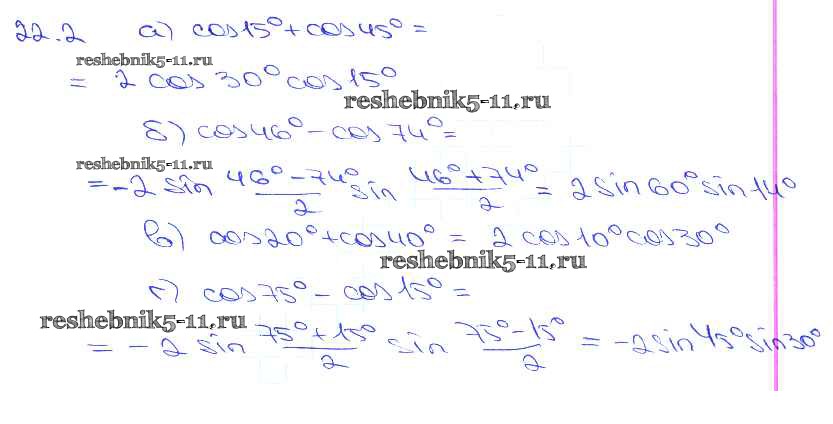 22.2 а) cos15° + cos45° =
reshebnik5-11.ru
= 2 cos 30° cos 15°
reshebnik5-11.ru
б) cos46° - cos 74° =
reshebnik5-11.ru
= -2 sin (46° - 74°)/2 sin (46° + 74°)/2 = 2 sin 60° sin 14°
в) cos20° + cos40° = 2 cos10° cos30°
reshebnik5-11.ru
г) cos75° - cos15° =
reshebnik5-11.ru
= -2 sin (75° + 15°)/2 sin (75° - 15°)/2 = -2 sin 45° sin 30°